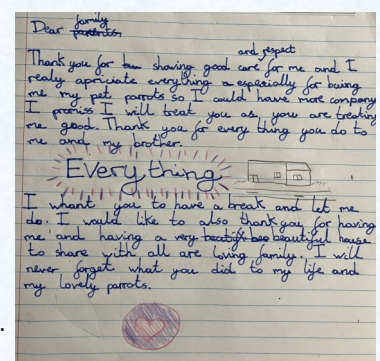 Dear family parents
and respect
Thank you for showing good care for me and I
realy apriciate everything especially for buing
me my pet parrots so I could have more company
I promiss I will treat you as you are treating
me good. Thank you for every thing you do to
me and my brother.
Everything
I whant you to have a break and let me
do. I would like to also thank you for having
me and having a very beautiful house
to share with all are loving family. I will
never forget what you did to my life and
my lovely parrots.